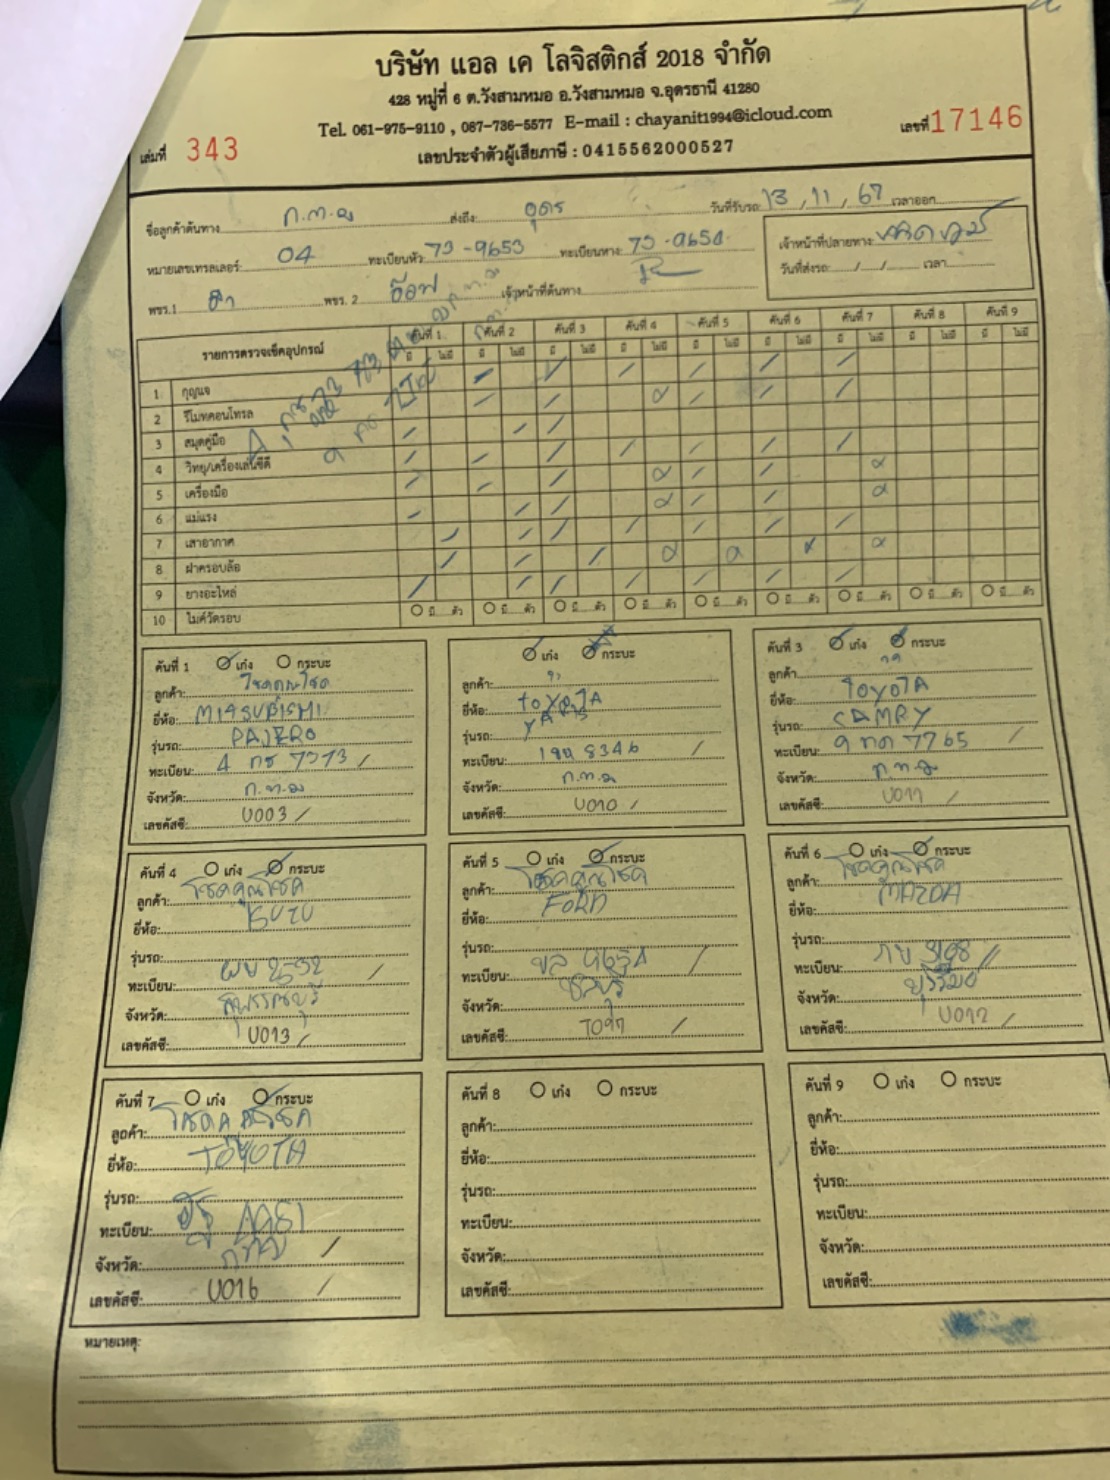 บริษัท แอล เค โลจิสติกส์ 2018 จำกัด
428 หมู่ที่ 6 ต.วังสามหมอ อ.วังสามหมอ จ.อุดรธานี 41280
Tel. 061-975-9110 , 087-736-5577 E-mail : chayanit1994@icloud.com
เล่มที่ 343 เลขประจำตัวผู้เสียภาษี : 0415562000527 เลขที่ 17146
ชื่อลูกค้าต้นทาง ก.ท.ม ส่งถึง อุดร วันที่รับรถ 13 / 11 / 67 เวลาออก
หมายเลขเทรลเลอร์ 04 ทะเบียนหัว 73-9653 ทะเบียนหาง 73-9654 เจ้าหน้าที่ปลายทาง
พขร.1 พขร. 2 อ๊อฟ เจ้าหน้าที่ต้นทาง วันที่ส่งรถ / / เวลา
รายการตรวจเช็คอุปกรณ์ คันที่ 1 คันที่ 2 คันที่ 3 คันที่ 4 คันที่ 5 คันที่ 6 คันที่ 7 คันที่ 8 คันที่ 9
มี ไม่มี มี ไม่มี มี ไม่มี มี ไม่มี มี ไม่มี มี ไม่มี มี ไม่มี มี ไม่มี มี ไม่มี
1 กุญแจ
2 รีโมทคอนโทรล
3 สมุดคู่มือ
4 วิทยุ/เครื่องเล่นซีดี
5 เครื่องมือ
6 แม่แรง
7 เสาอากาศ
8 ฝาครอบล้อ
9 ยางอะไหล่
10 ไมค์วัดรอบ มี ตัว มี ตัว มี ตัว มี ตัว มี ตัว มี ตัว มี ตัว มี ตัว มี ตัว
คันที่ 1 เก๋ง กระบะ
ลูกค้า: โชคคูณโชค
ยี่ห้อ: MITSUBISHI
รุ่นรถ: PAJERO
ทะเบียน: 4 กธ 7373 /
จังหวัด: ก.ท.ม
เลขคัสซี: U003 /
เก๋ง กระบะ
ลูกค้า:
ยี่ห้อ: TOYOTA
รุ่นรถ: YARIS
ทะเบียน: 8346 /
จังหวัด: ก.ท.ม
เลขคัสซี: U010 /
คันที่ 3 เก๋ง กระบะ
ลูกค้า
ยี่ห้อ: TOYOTA
รุ่นรถ: CAMRY
ทะเบียน: 9 กด 7765 /
จังหวัด: ก.ท.ม
เลขคัสซี: U011 /
คันที่ 4 เก๋ง กระบะ
ลูกค้า: โชคคูณโชค
ยี่ห้อ: ISUZU
รุ่นรถ:
ทะเบียน: ผย 2552 /
จังหวัด: สุพรรณบุรี
เลขคัสซี: U013 /
คันที่ 5 เก๋ง กระบะ
ลูกค้า: โชคคูณโชค
ยี่ห้อ: FORD
รุ่นรถ:
ทะเบียน: ขล 9654 /
จังหวัด: ชลบุรี
เลขคัสซี: T097 /
คันที่ 6 เก๋ง กระบะ
ลูกค้า: โชคคูณโชค
ยี่ห้อ: MAZDA
รุ่นรถ:
ทะเบียน:
จังหวัด: บุรีรัมย์
เลขคัสซี: U012 /
คันที่ 7 เก๋ง กระบะ
ลูกค้า: โชคคูณโชค
ยี่ห้อ: TOYOTA
รุ่นรถ:
ทะเบียน:
จังหวัด: กทม /
เลขคัสซี: U016 /
คันที่ 8 เก๋ง กระบะ
ลูกค้า:
ยี่ห้อ:
รุ่นรถ:
ทะเบียน:
จังหวัด:
เลขคัสซี:
คันที่ 9 เก๋ง กระบะ
ลูกค้า:
ยี่ห้อ:
รุ่นรถ:
ทะเบียน:
จังหวัด:
เลขคัสซี:
หมายเหตุ: